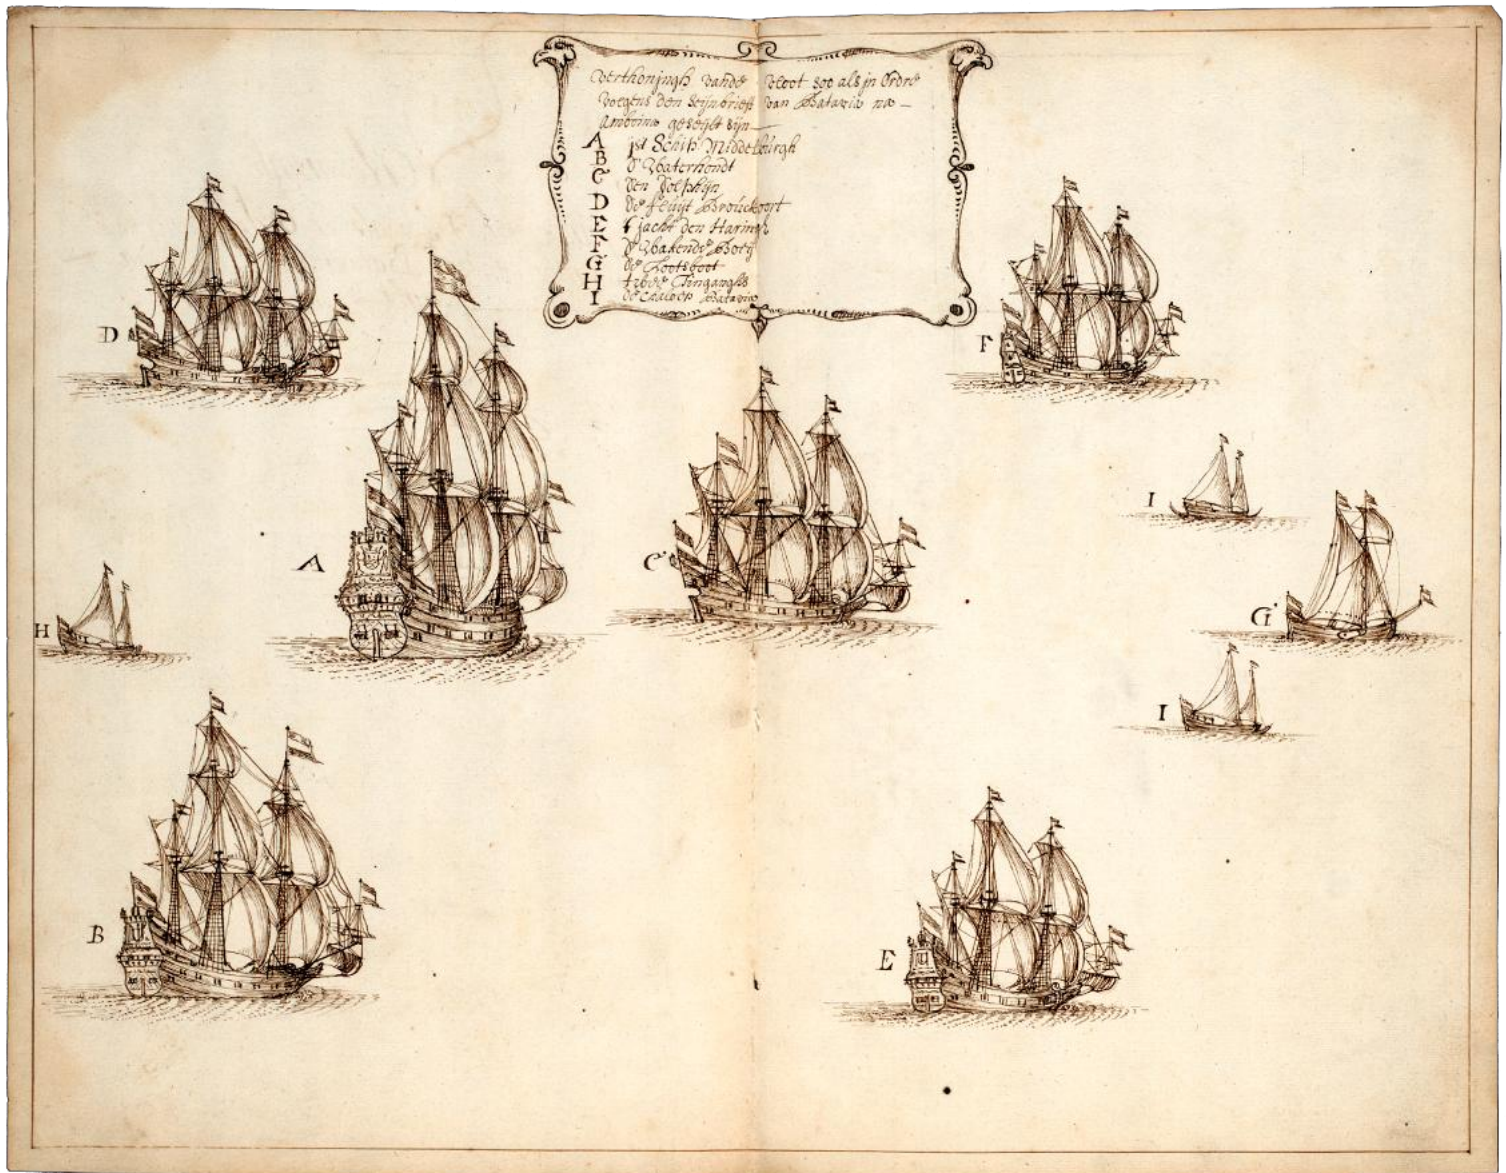 Verthonjngh vande vloot soo als jn Ordre
volgens den seijnbrieff van Batavia na
Amboina geseijlt sijn
A jst Schip Middelburgh
B d'Waterhondt
C den Dolphijn
D de fluijt Brouckoort
E t jacht den Haringh
F De Wakende Boeij
G de Lootsboot
H
I de Chaloep Batavia
D
F
A
C
I
G
H
I
B
E